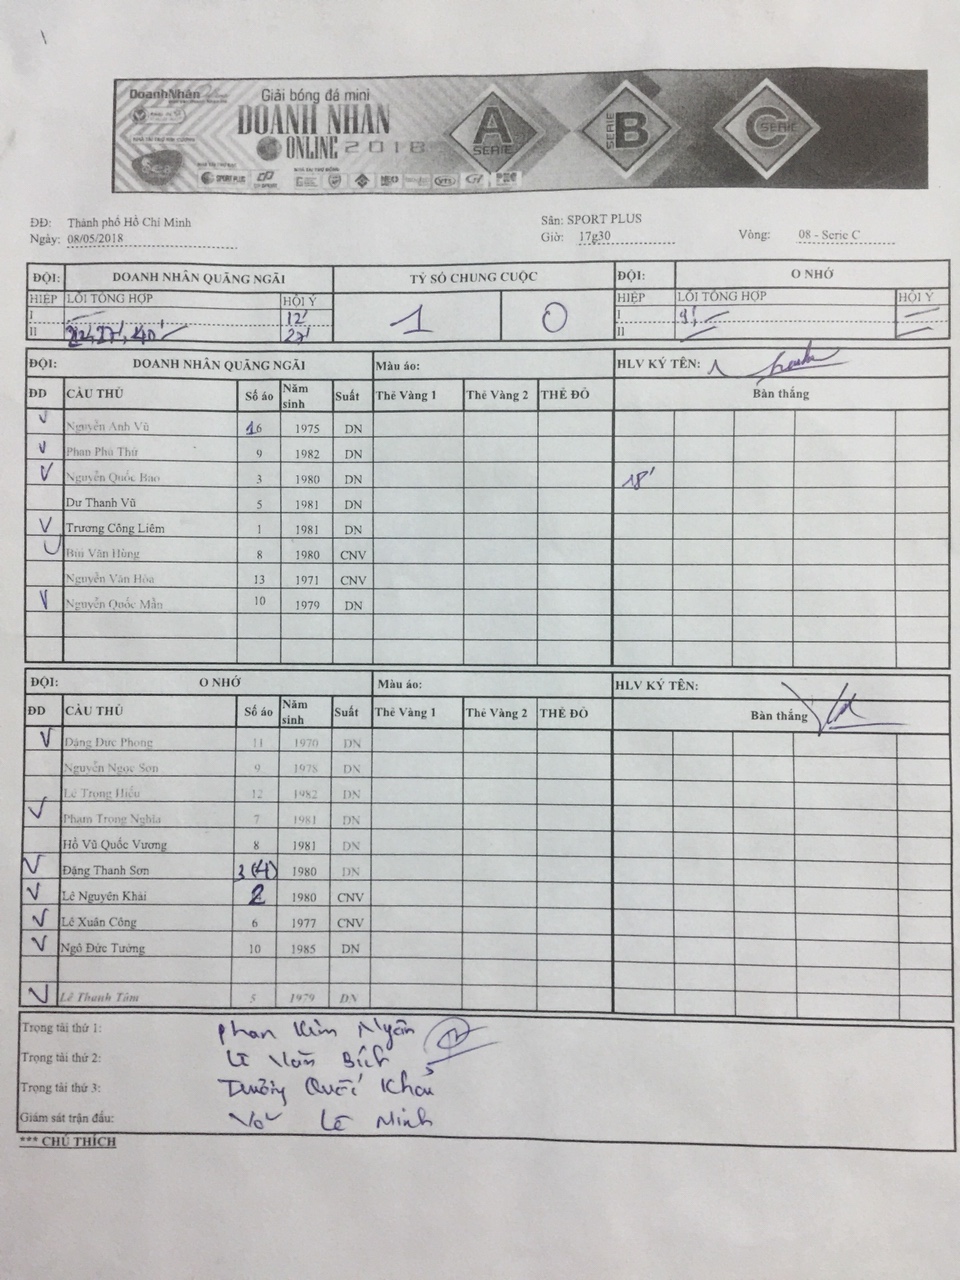 DoanhNhân
Giải bóng đá mini
DOANH NHÂN
ONLINE 2018
A SERIE
SERIE B
C SERIE
SPORT PLUS
ĐĐ: Thành phố Hồ Chí Minh Sân: SPORT PLUS
Ngày: 08/05/2018 Giờ: 17g30 Vòng: 08 - Serie C
ĐỘI: DOANH NHÂN QUÃNG NGÃI TỶ SỐ CHUNG CUỘC ĐỘI: O NHỚ
HIỆP LỖI TỔNG HỢP HỘI Ý 1 0 HIỆP LỖI TỔNG HỢP HỘI Ý
I 12' I 9'
II 27', 40' 27' II
ĐỘI: DOANH NHÂN QUÃNG NGÃI Màu áo: HLV KÝ TÊN:
ĐD CẦU THỦ Số áo Năm sinh Suất Thẻ Vàng 1 Thẻ Vàng 2 THẺ ĐỎ Bàn thắng
Nguyễn Anh Vũ 16 1975 DN
Phan Phú Thứ 9 1982 DN
Nguyễn Quốc Bảo 3 1980 DN 18'
Dư Thanh Vũ 5 1981 DN
Trương Công Liêm 1 1981 DN
Bùi Văn Hùng 8 1980 CNV
Nguyễn Văn Hòa 13 1971 CNV
Nguyễn Quốc Mẫn 10 1979 DN
ĐỘI: O NHỚ Màu áo: HLV KÝ TÊN:
ĐD CẦU THỦ Số áo Năm sinh Suất Thẻ Vàng 1 Thẻ Vàng 2 THẺ ĐỎ Bàn thắng
Đặng Đức Phong 11 1970 DN
Nguyễn Ngọc Sơn 9 1978 DN
Lê Trọng Hiếu 12 1982 DN
Phạm Trọng Nghĩa 7 1981 DN
Hồ Vũ Quốc Vương 8 1981 DN
Đặng Thanh Sơn 3 (4) 1980 DN
Lê Nguyên Khải 2 1980 CNV
Lê Xuân Công 6 1977 CNV
Ngô Đức Tưởng 10 1985 DN
Lê Thanh Tâm 5 1979 DN
Trọng tài thứ 1: Phan Kim Ngân
Trọng tài thứ 2: Lê Văn Bích
Trọng tài thứ 3: Trương Quốc Khải
Giám sát trận đấu: Võ Lê Minh
*** CHÚ THÍCH